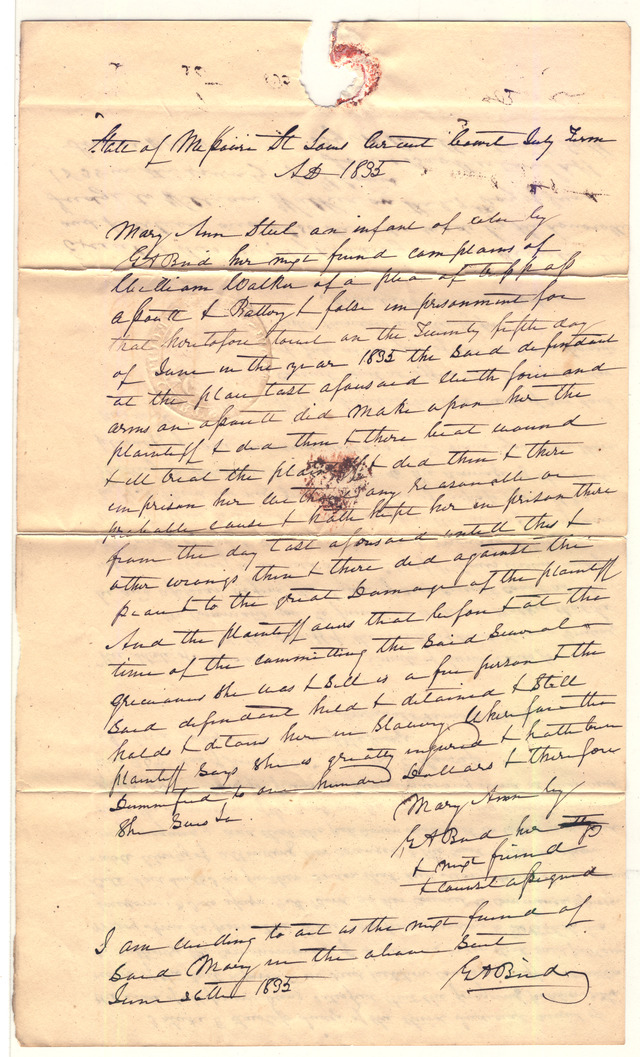 State of Missouri St Louis Circuit Court July Term
AD 1835
Mary Ann Steel an infant of color by
G A Bird her next friend complains of
William Walker of a plea of Trespass
assault & Battery & false imprisonment for
that heretofore towit on the Twenty fifth day
of June in the year 1835 the said defendant
at the place last aforesaid with force and
arms an assault did make upon her the
plaintiff & did then & there beat wound
& ill treat the plaintiff & did then & there
imprison her without any reasonable or
probable cause & hath kept her in prison there
from the day last aforesaid untill this &
other wrongs then & there did against the
peace & to the great Damage of the plaintiff
And the plaintiff avers that before & at the
time of the committing the said several
grievances she was & still is a free person & the
said defendant held & detained & still
holds & detains her in Slavery Wherefore the
plaintiff says she is greatly injured & hath been
Damnified to one hundred Dollars & therefore
She Sues &c
Mary Ann by
G A Bird her
& next friend
& council assigned
I am willing to act as the next friend of
said Mary in the above Suit
June 26th 1835 G A Bird